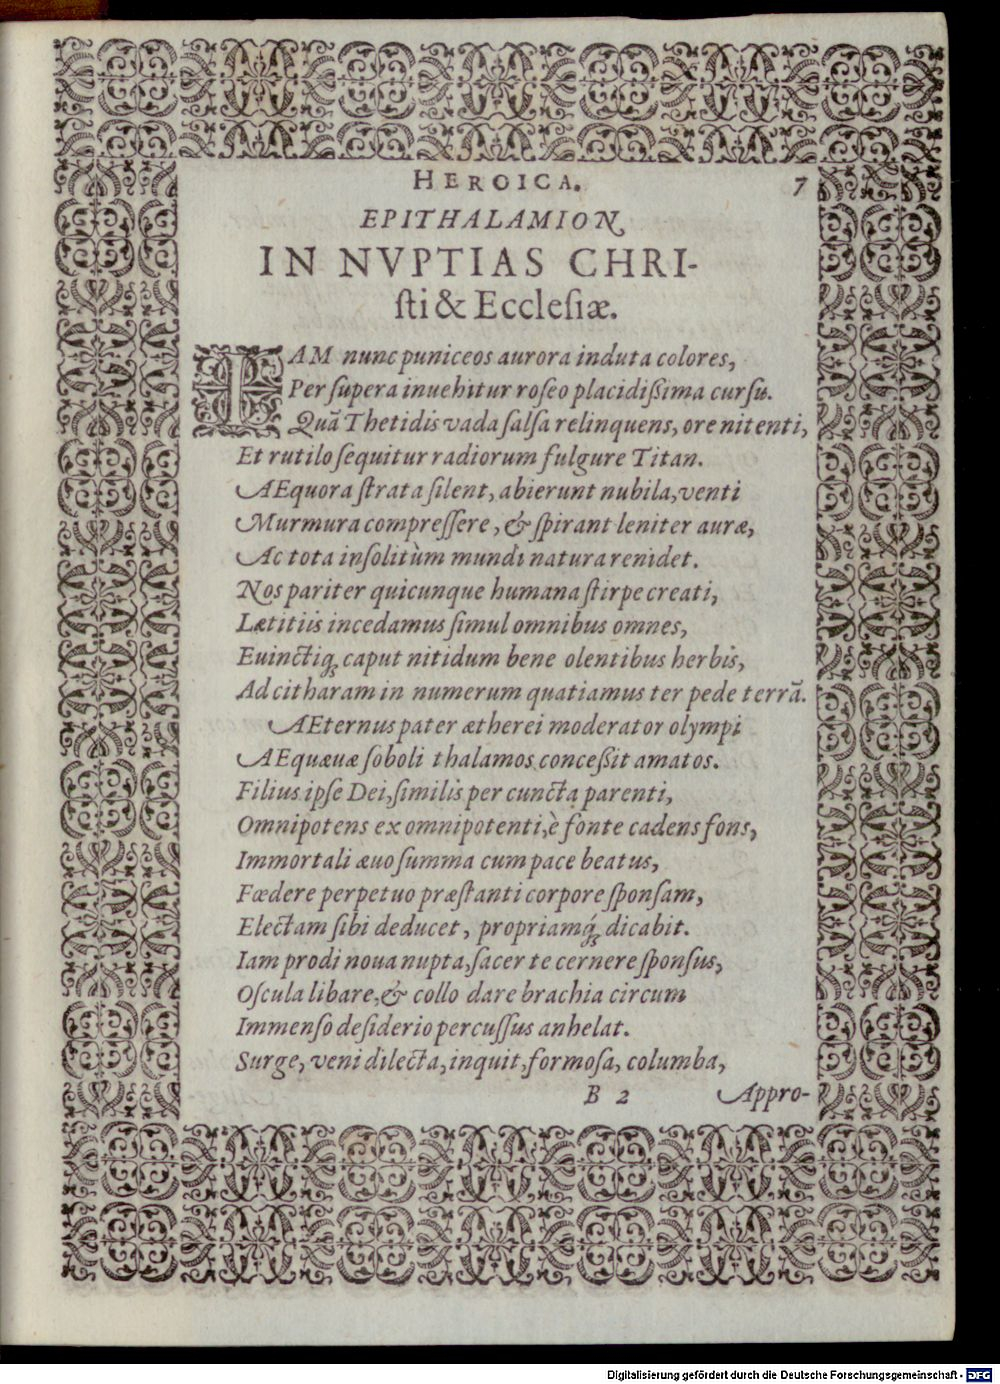 HEROICA. 7
EPITHALAMION
IN NVPTIAS CHRI-
sti & Ecclesiæ.
IAM nunc puniceos aurora induta colores,
Per supera inuehitur roseo placidißima cursu.
Quã Thetidis vada salsa relinquens, ore nitenti,
Et rutilo sequitur radiorum fulgure Titan.
AEquora strata silent, abierunt nubila, venti
Murmura compressere, & spirant leniter auræ,
Ac tota insolitùm mundi natura renidet.
Nos pariter quicunque humana stirpe creati,
Lætitiis incedamus simul omnibus omnes,
Euinctiq; caput nitidum bene olentibus herbis,
Ad citharam in numerum quatiamus ter pede terrã.
AEternus pater ætherei moderator olympi
AEquæuæ soboli thalamos conceßit amatos.
Filius ipse Dei, similis per cuncta parenti,
Omnipotens ex omnipotenti, è fonte cadens fons,
Immortali æuo summa cum pace beatus,
Fœdere perpetuo præstanti corpore sponsam,
Electam sibi deducet, propriamq́; dicabit.
Iam prodi noua nupta, sacer te cernere sponsus,
Oscula libare, & collo dare brachia circum
Immenso desiderio percussus anhelat.
Surge, veni dilecta, inquit, formosa, columba,
B 2 Appro-
Digitalisierung gefördert durch die Deutsche Forschungsgemeinschaft - DFG